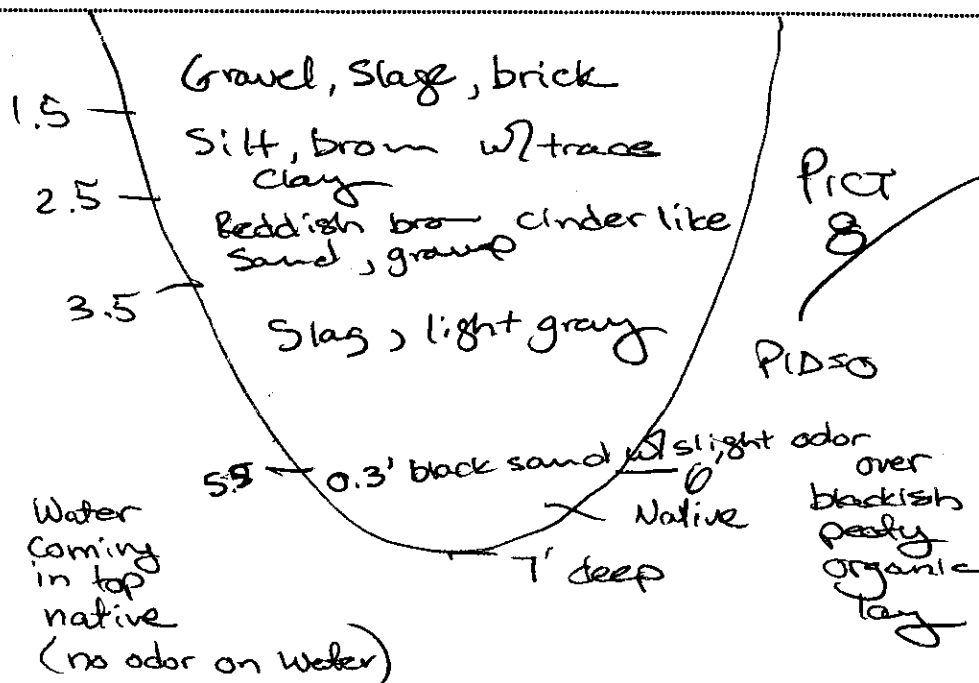 Gravel, Slage, brick
1.5
Silt, brown w/ trace
clay
2.5
Reddish brown cinder like
Sand, gravel
3.5
Slag, light gray
PICT
8
PID=0
0.3' black sand w/ slight odor
over
blackish
peaty
organic
6
Native
7' deep
Water
coming
in top
native
(no odor on water)